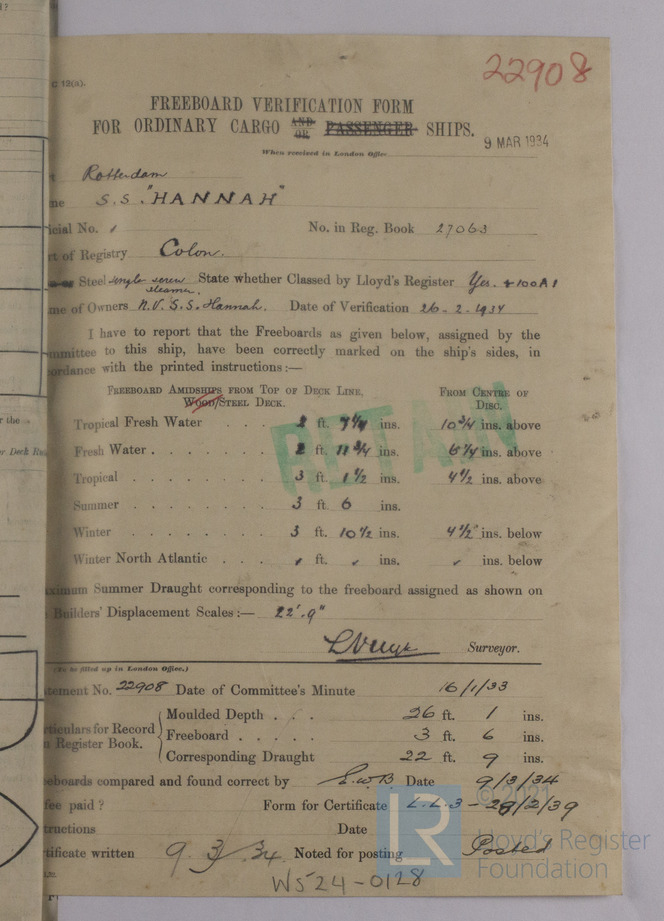 22908
C 12(a).
FREEBOARD VERIFICATION FORM
FOR ORDINARY CARGO AND OR PASSENGER SHIPS.
9 MAR 1934
When received in London Office
Rotterdam
me S.S. "HANNAH"
icial No. No. in Reg. Book 27063
rt of Registry Colon.
Steel single screw steamer. State whether Classed by Lloyd's Register Yes. +100A1
me of Owners N.V. S.S. Hannah. Date of Verification 26-2-1934
I have to report that the Freeboards as given below, assigned by the
mmittee to this ship, have been correctly marked on the ship's sides, in
ordance with the printed instructions:—
FREEBOARD AMIDSHIPS FROM TOP OF DECK LINE, FROM CENTRE OF
WOOD/STEEL DECK. DISC.
RETAIN
Tropical Fresh Water . . . 2 ft. 7 1/4 ins. 10 3/4 ins. above
Fresh Water . . . . . . 2 ft. 11 3/4 ins. 6 1/4 ins. above
Tropical . . . . . . . 3 ft. 1 1/2 ins. 4 1/2 ins. above
Summer . . . . . . . 3 ft. 6 ins.
Winter . . . . . . . 3 ft. 10 1/2 ins. 4 1/2" ins. below
Winter North Atlantic . . . ft. ins. ins. below
ximum Summer Draught corresponding to the freeboard assigned as shown on
Builders' Displacement Scales:— 22'.9"
Surveyor.
(To be filled up in London Office.)
tement No. 22908 Date of Committee's Minute 16/1/33
rticulars for Record
n Register Book.
Moulded Depth . . . 26 ft. 1 ins.
Freeboard . . . . . 3 ft. 6 ins.
Corresponding Draught 22 ft. 9 ins.
eeboards compared and found correct by E.W.B. Date 9/3/34
fee paid? Form for Certificate L.L.3 - 28/2/39
tructions Date
rtificate written 9.3/.34 Noted for posting Posted
WS24-0128
© 2021
LR
Lloyd's Register
Foundation